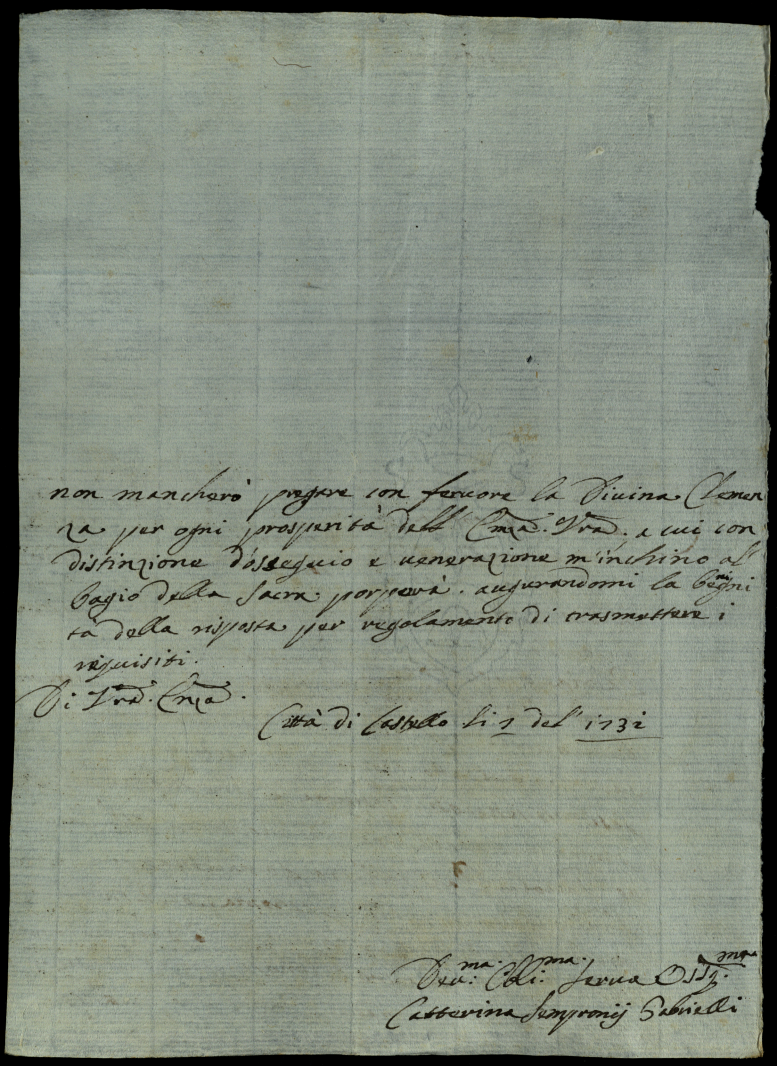 non mancherò pregare con feruore la Diuina Clemen
za per ogni prosperità dell' Emza. Vra. a cui con
distinzione d'ossequio e uenerazione m'inchino al
bagio della Sacra porpora. augurandomi la begni
tà della risposta per regolamento di trasmettere i
requisiti.
Di Vra. Emza.
Città di Castello li 7 del 1732
Deu:ma. Obli:ma. Serua Ossq.ma
Catterina Sempronij Gabrielli